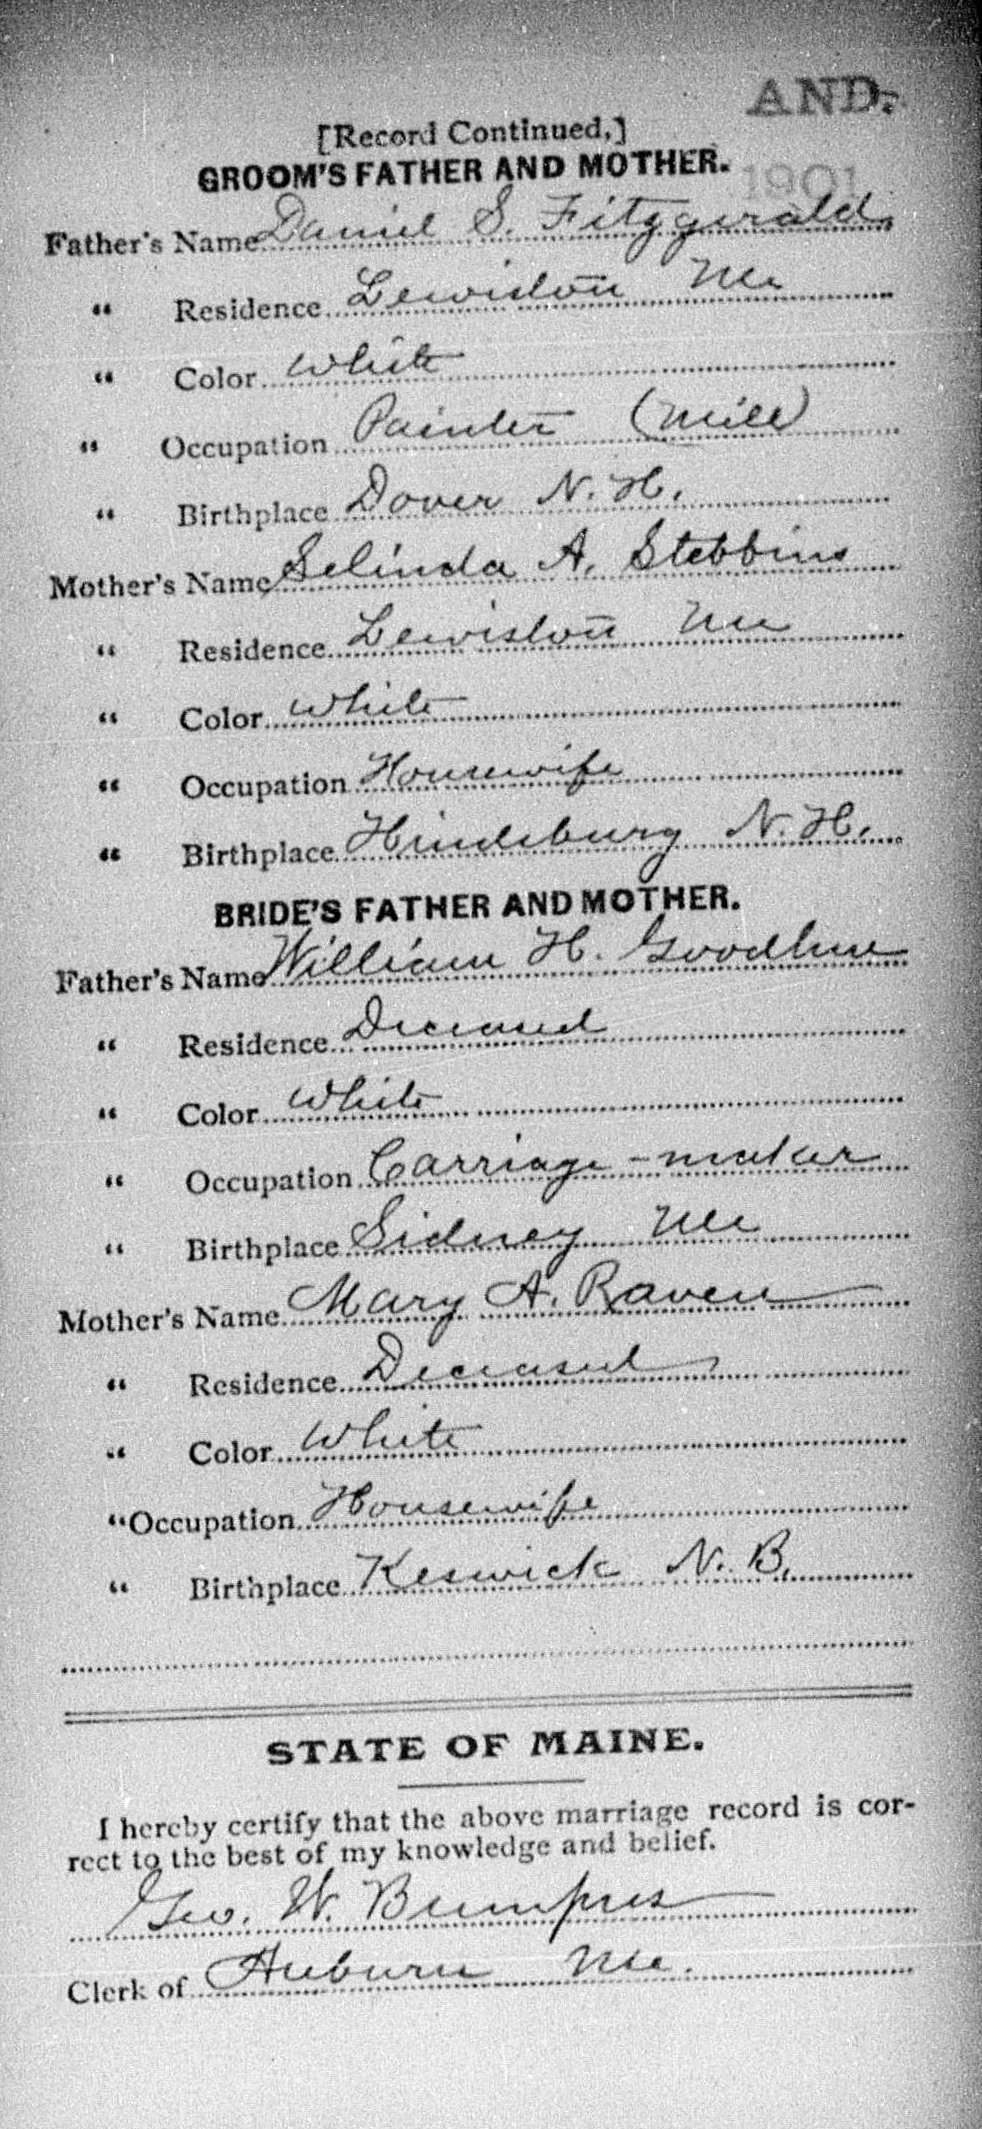 AND.
[Record Continued,]
GROOM'S FATHER AND MOTHER.
1901
Father's Name Daniel S. Fitzgerald
" Residence Lewiston Me
" Color White
" Occupation Painter (Mill)
" Birthplace Dover N. H.
Mother's Name Selinda A. Stebbins
" Residence Lewiston Me
" Color White
" Occupation Housewife
" Birthplace Hindsburg N. H.
BRIDE'S FATHER AND MOTHER.
Father's Name William H. Goodhue
" Residence Deceased
" Color White
" Occupation Carriage-maker
" Birthplace Sidney Me
Mother's Name Mary A. Raven
" Residence Deceased
" Color White
" Occupation Housewife
" Birthplace Keswick N. B.
STATE OF MAINE.
I hereby certify that the above marriage record is cor-
rect to the best of my knowledge and belief.
Geo. W. Bumpus
Clerk of Auburn Me.